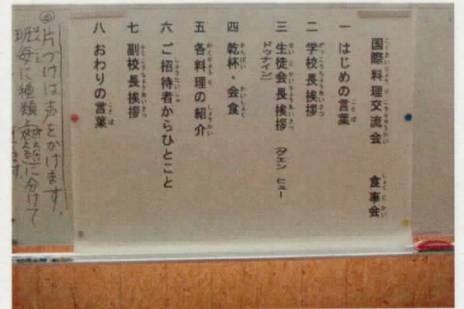 国際料理交流会　食事会
一 はじめの言葉
二 学校長挨拶
三 生徒会長挨拶 (タエン ヒュー
ドゥナイン)
四 乾杯・会食
五 各料理の紹介
六 ご招待者からひとこと
七 副校長挨拶
八 おわりの言葉
◎片づけは声をかけます。
班毎に種類に分けて